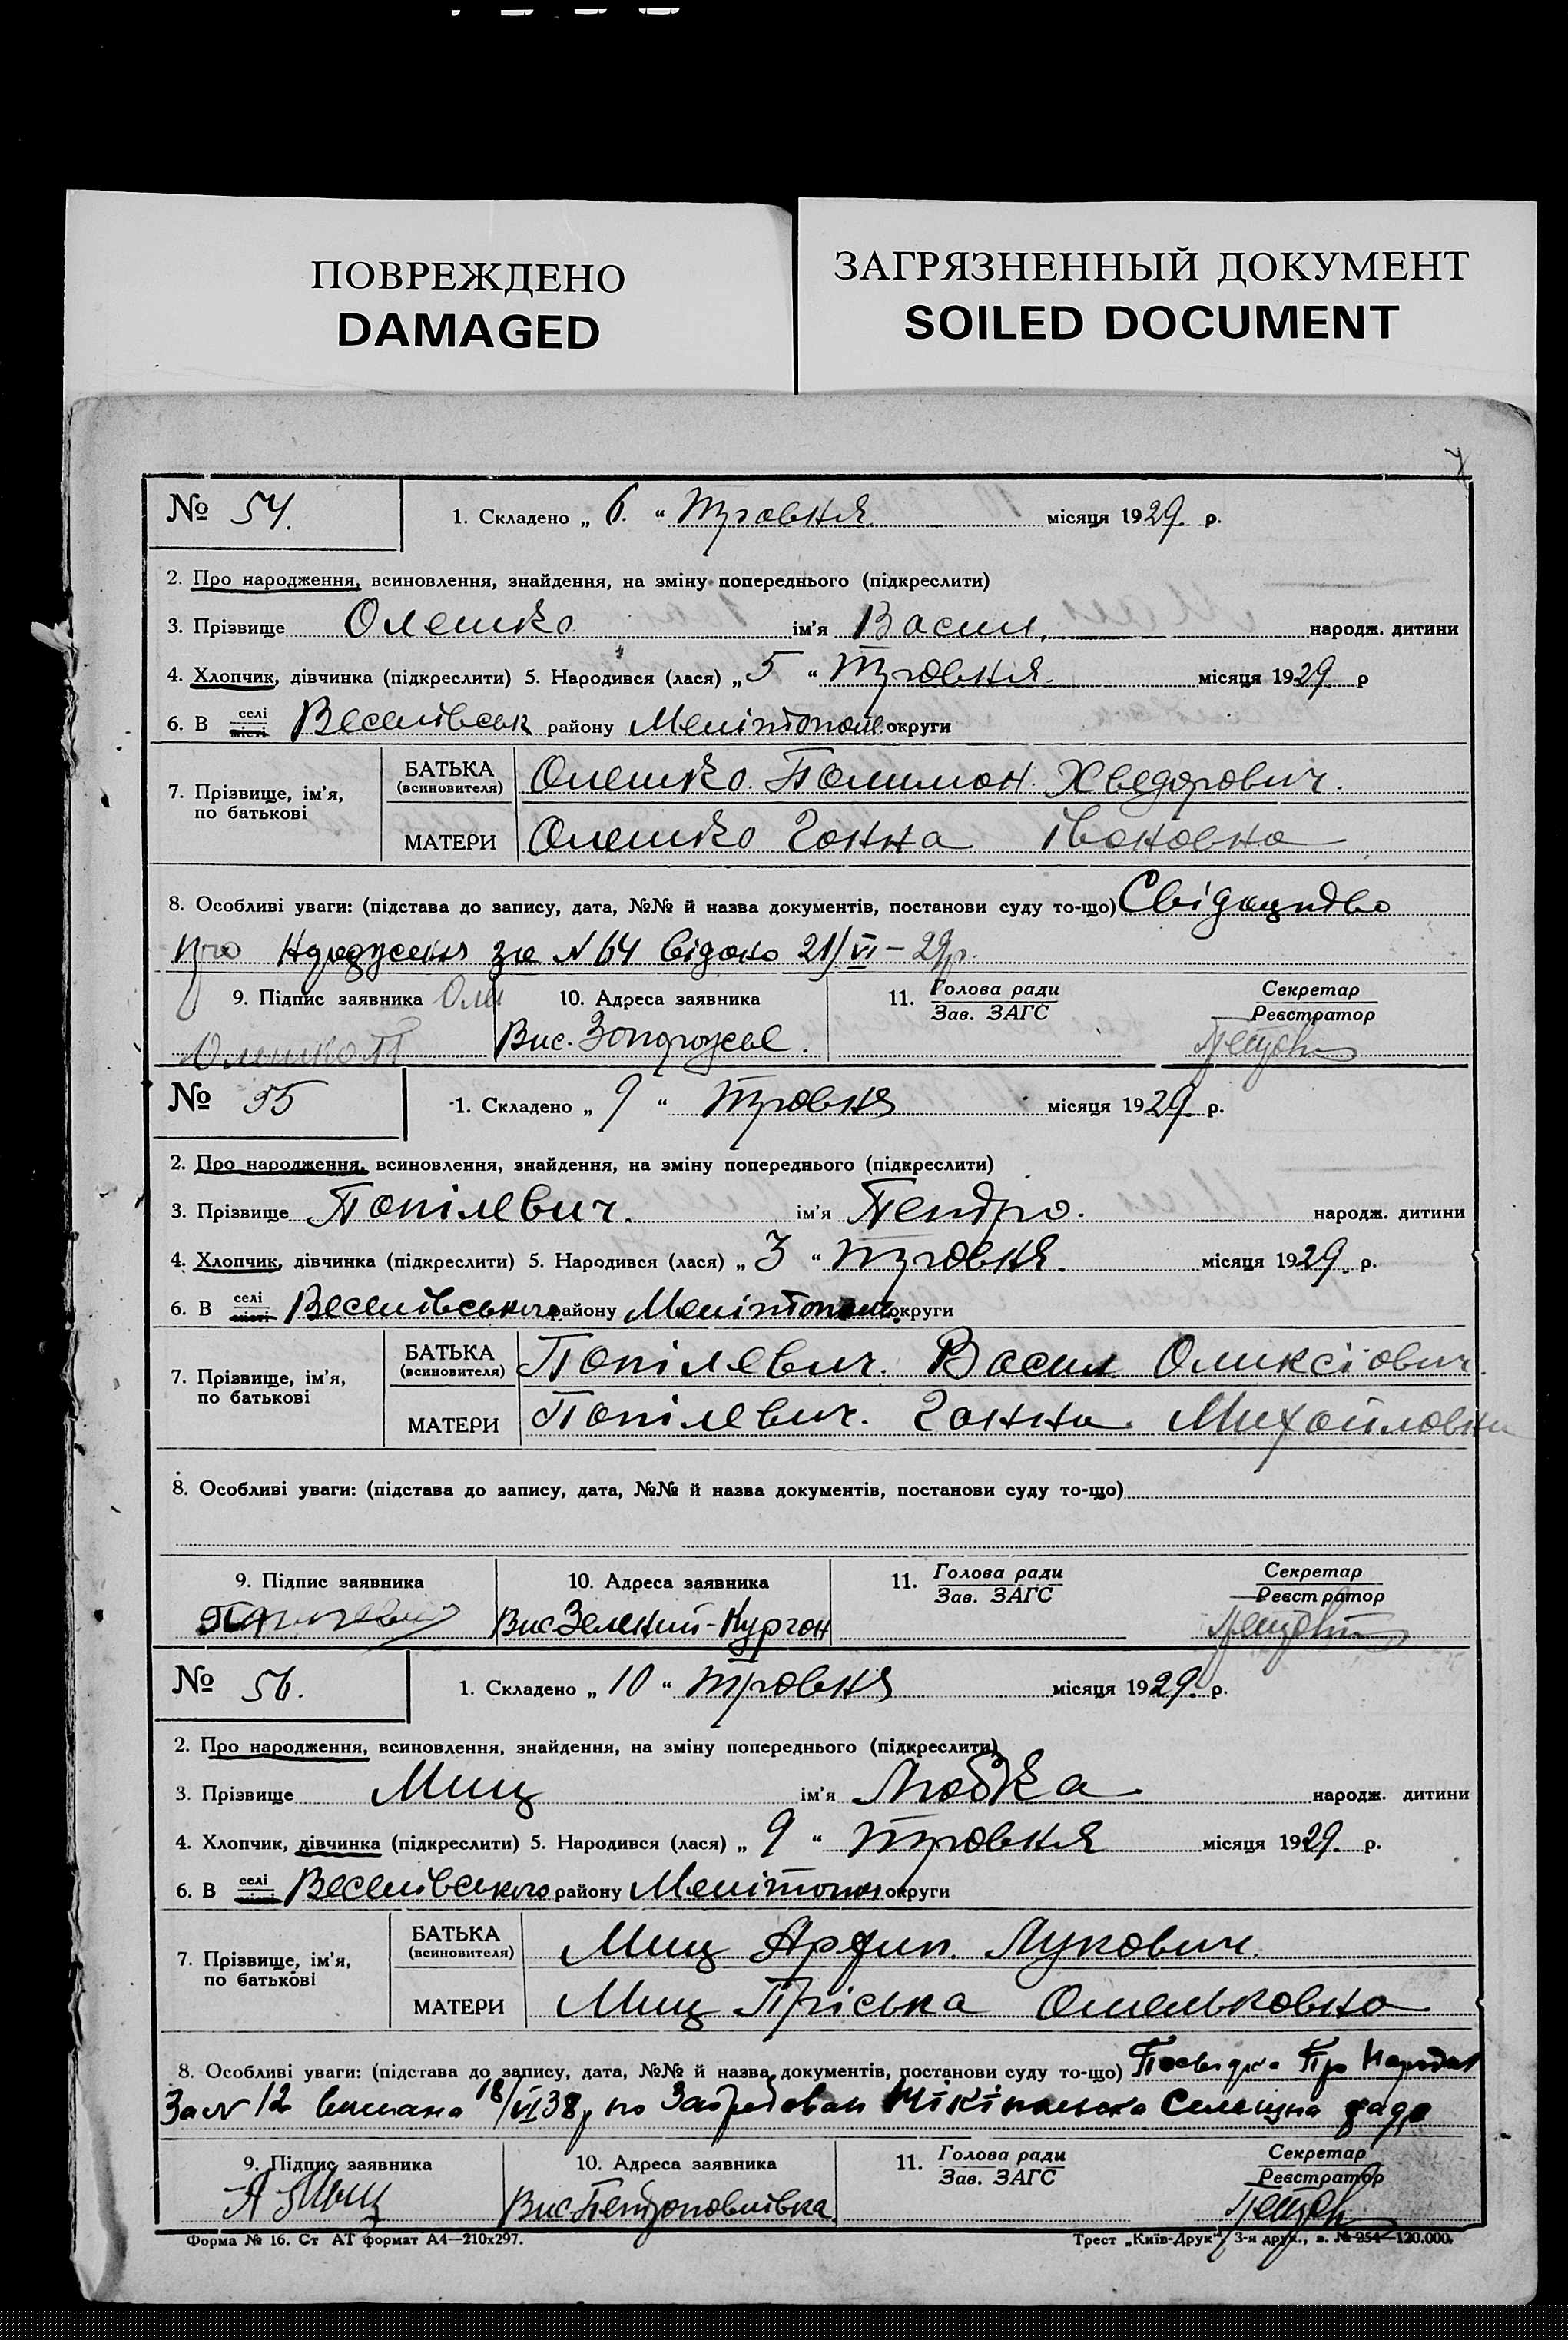 ПОВРЕЖДЕНО
DAMAGED
ЗАГРЯЗНЕННЫЙ ДОКУМЕНТ
SOILED DOCUMENT
№ 54. 1. Складено „ 6. “ Травня місяця 1929. р.
2. Про народження, всиновлення, знайдення, на зміну попереднього (підкреслити)
3. Прізвище Олешко ім'я Васил. народж. дитини
4. Хлопчик, дівчинка (підкреслити) 5. Народився (лася) „ 5 “ Травня. місяця 1929. р
6. В селі місті Веселівськ району Меліпопол. округи
7. Прізвище, ім'я, по батькові БАТЬКА (всиновителя) Олешко. Палимон. Хведорович.
МАТЕРИ Олешко Ганна Івановна
8. Особливі уваги: (підстава до запису, дата, №№ й назва документів, постанови суду то-що) Свідоцтво
про за N 64 видано 21/VI – 29р.
9. Підпис заявника 10. Адреса заявника 11. Голова ради Зав. ЗАГС Секретар Реєстратор
Олешко П Вис. Запорожье.
№ 55 1. Складено „ 9 “ Травня місяця 1929. р.
2. Про народження, всиновлення, знайдення, на зміну попереднього (підкреслити)
3. Прізвище Попілевич. ім'я Пентро. народж. дитини
4. Хлопчик, дівчинка (підкреслити) 5. Народився (лася) „ 3 “ Травня. місяця 1929. р.
6. В селі місті Веселівського району Меліпопол. округи
7. Прізвище, ім'я, по батькові БАТЬКА (всиновителя) Попілевич. Васил Оликсіович.
МАТЕРИ Попілевич. Ганна. Михайловна
8. Особливі уваги: (підстава до запису, дата, №№ й назва документів, постанови суду то-що)
9. Підпис заявника 10. Адреса заявника 11. Голова ради Зав. ЗАГС Секретар Реєстратор
Вис. Зелений-Курган
№ 56. 1. Складено „ 10 “ травня місяця 1929. р.
2. Про народження, всиновлення, знайдення, на зміну попереднього (підкреслити)
3. Прізвище Миц ім'я Любка народж. дитини
4. Хлопчик, дівчинка (підкреслити) 5. Народився (лася) „ 9 “ Травня місяця 1929. р.
6. В селі місті Веселівського району Меліпопол округи
7. Прізвище, ім'я, по батькові БАТЬКА (всиновителя) Миц Архип. Лукович.
МАТЕРИ Миц Пріська Омельковна
8. Особливі уваги: (підстава до запису, дата, №№ й назва документів, постанови суду то-що) Про
За N 12 18/VI 38р по рада
9. Підпис заявника 10. Адреса заявника 11. Голова ради Зав. ЗАГС Секретар Реєстратор
А Миц Вис. Петропавлівка.
Форма № 16. Ст АТ формат А4—210x297. Трест „Київ-Друк“, 3-я друк., з. № 254—120.000.